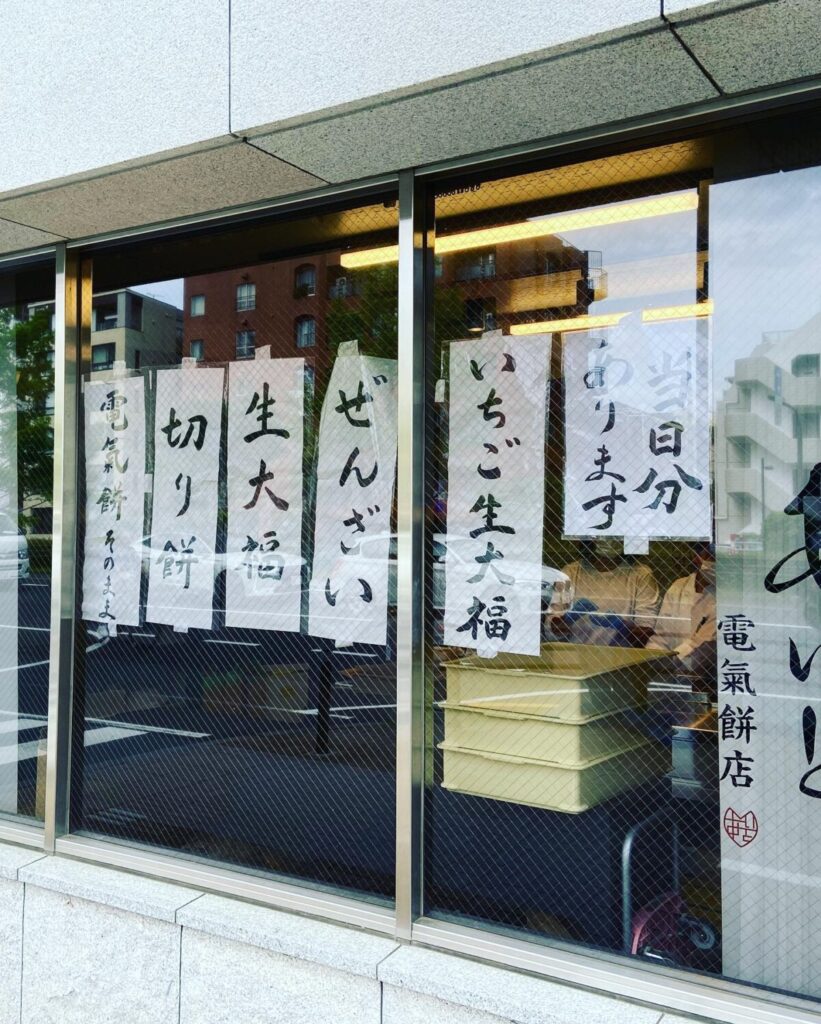 当日分
あります
いちご生大福
ぜんざい
生大福
切り餅
電氣餅そのまま
電氣餅店